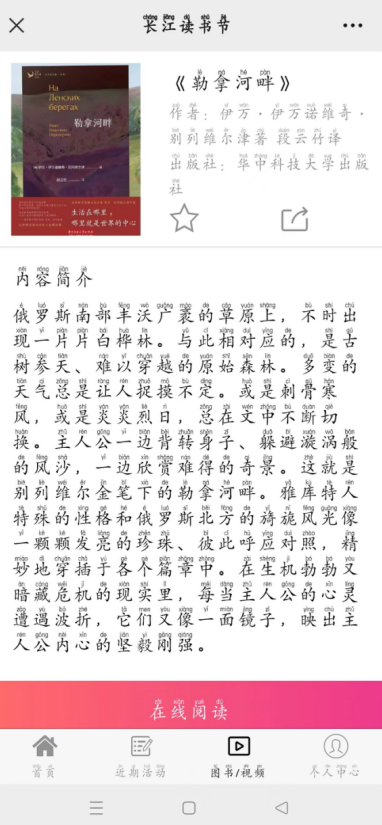 长江读书节
На
Ленских
берегах
勒拿河畔
生活在哪里,
哪里就是世界的中心
《勒拿河畔》
作者:伊万·伊万诺维奇·
别列维尔津著 段云竹译
出版社:华中科技大学出版
社
内容简介
俄罗斯南部丰沃广袤的草原上,不时出
现一片片白桦林。与此相对应的,是古
树参天、难以穿越的原始森林。多变的
天气总是让人捉摸不定。或是刺骨寒
风,或是炎炎烈日,总在文中不断切
换。主人公一边背转身子、躲避漩涡般
的风沙,一边欣赏难得的奇景。这就是
别列维尔金笔下的勒拿河畔。雅库特人
特殊的性格和俄罗斯北方的旖旎风光像
一颗颗发亮的珍珠,彼此呼应对照,精
妙地穿插于各个篇章中。在生机勃勃又
暗藏危机的现实里,每当主人公的心灵
遭遇波折,它们又像一面镜子,映出主
人公内心的坚毅刚强。
在线阅读
首页 近期活动 图书/视频 个人中心